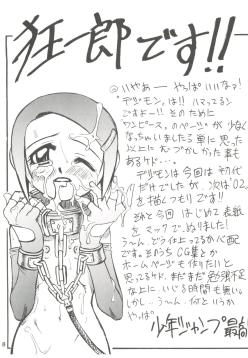 狂一郎です!!
◎いやぁー やっぱいいなァ!
は!! ハマってるン
ですよー!! そのために
ワンピースのページが少なく
なっちゃいました 単に思った
以上に むづかしかった事も
あるケド…。
デヂモンは今回は
だけでしたが、次は'02
を描くつもりです!!
それと今回 はじめて表紙
を マックで、ぬりました!
う〜ん、どう仕上ってるか心配
です。そのうちCG集とか
ホームページも作りたいと
思ってるケド、まだまだ勉強不足
な上に いじる時間も無い。
しかし…う〜ん、何というか
やっぱ
少年ジャンプ最高